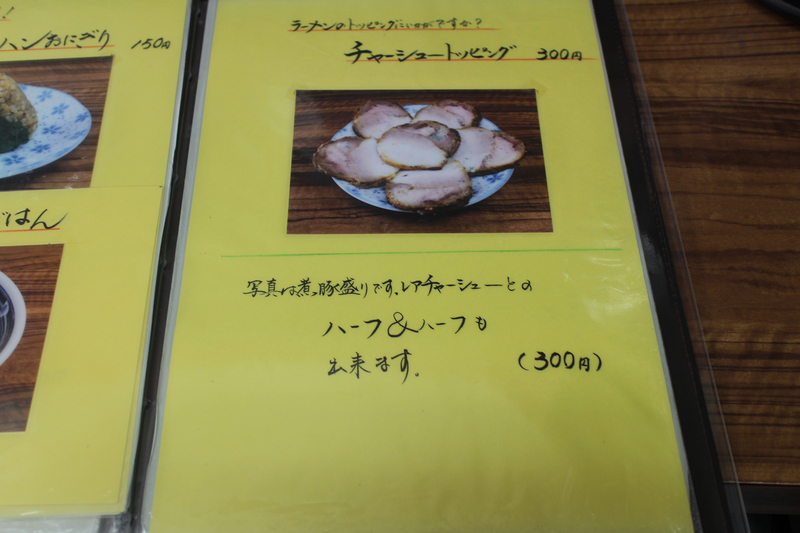 ！
ハンおにぎり 150円
ごはん
ラーメンのトッピングにいかがですか？
チャーシュートッピング 300円
写真は煮豚盛りです、レアチャーシューとの
ハーフ&ハーフも
出来ます。 (300円)